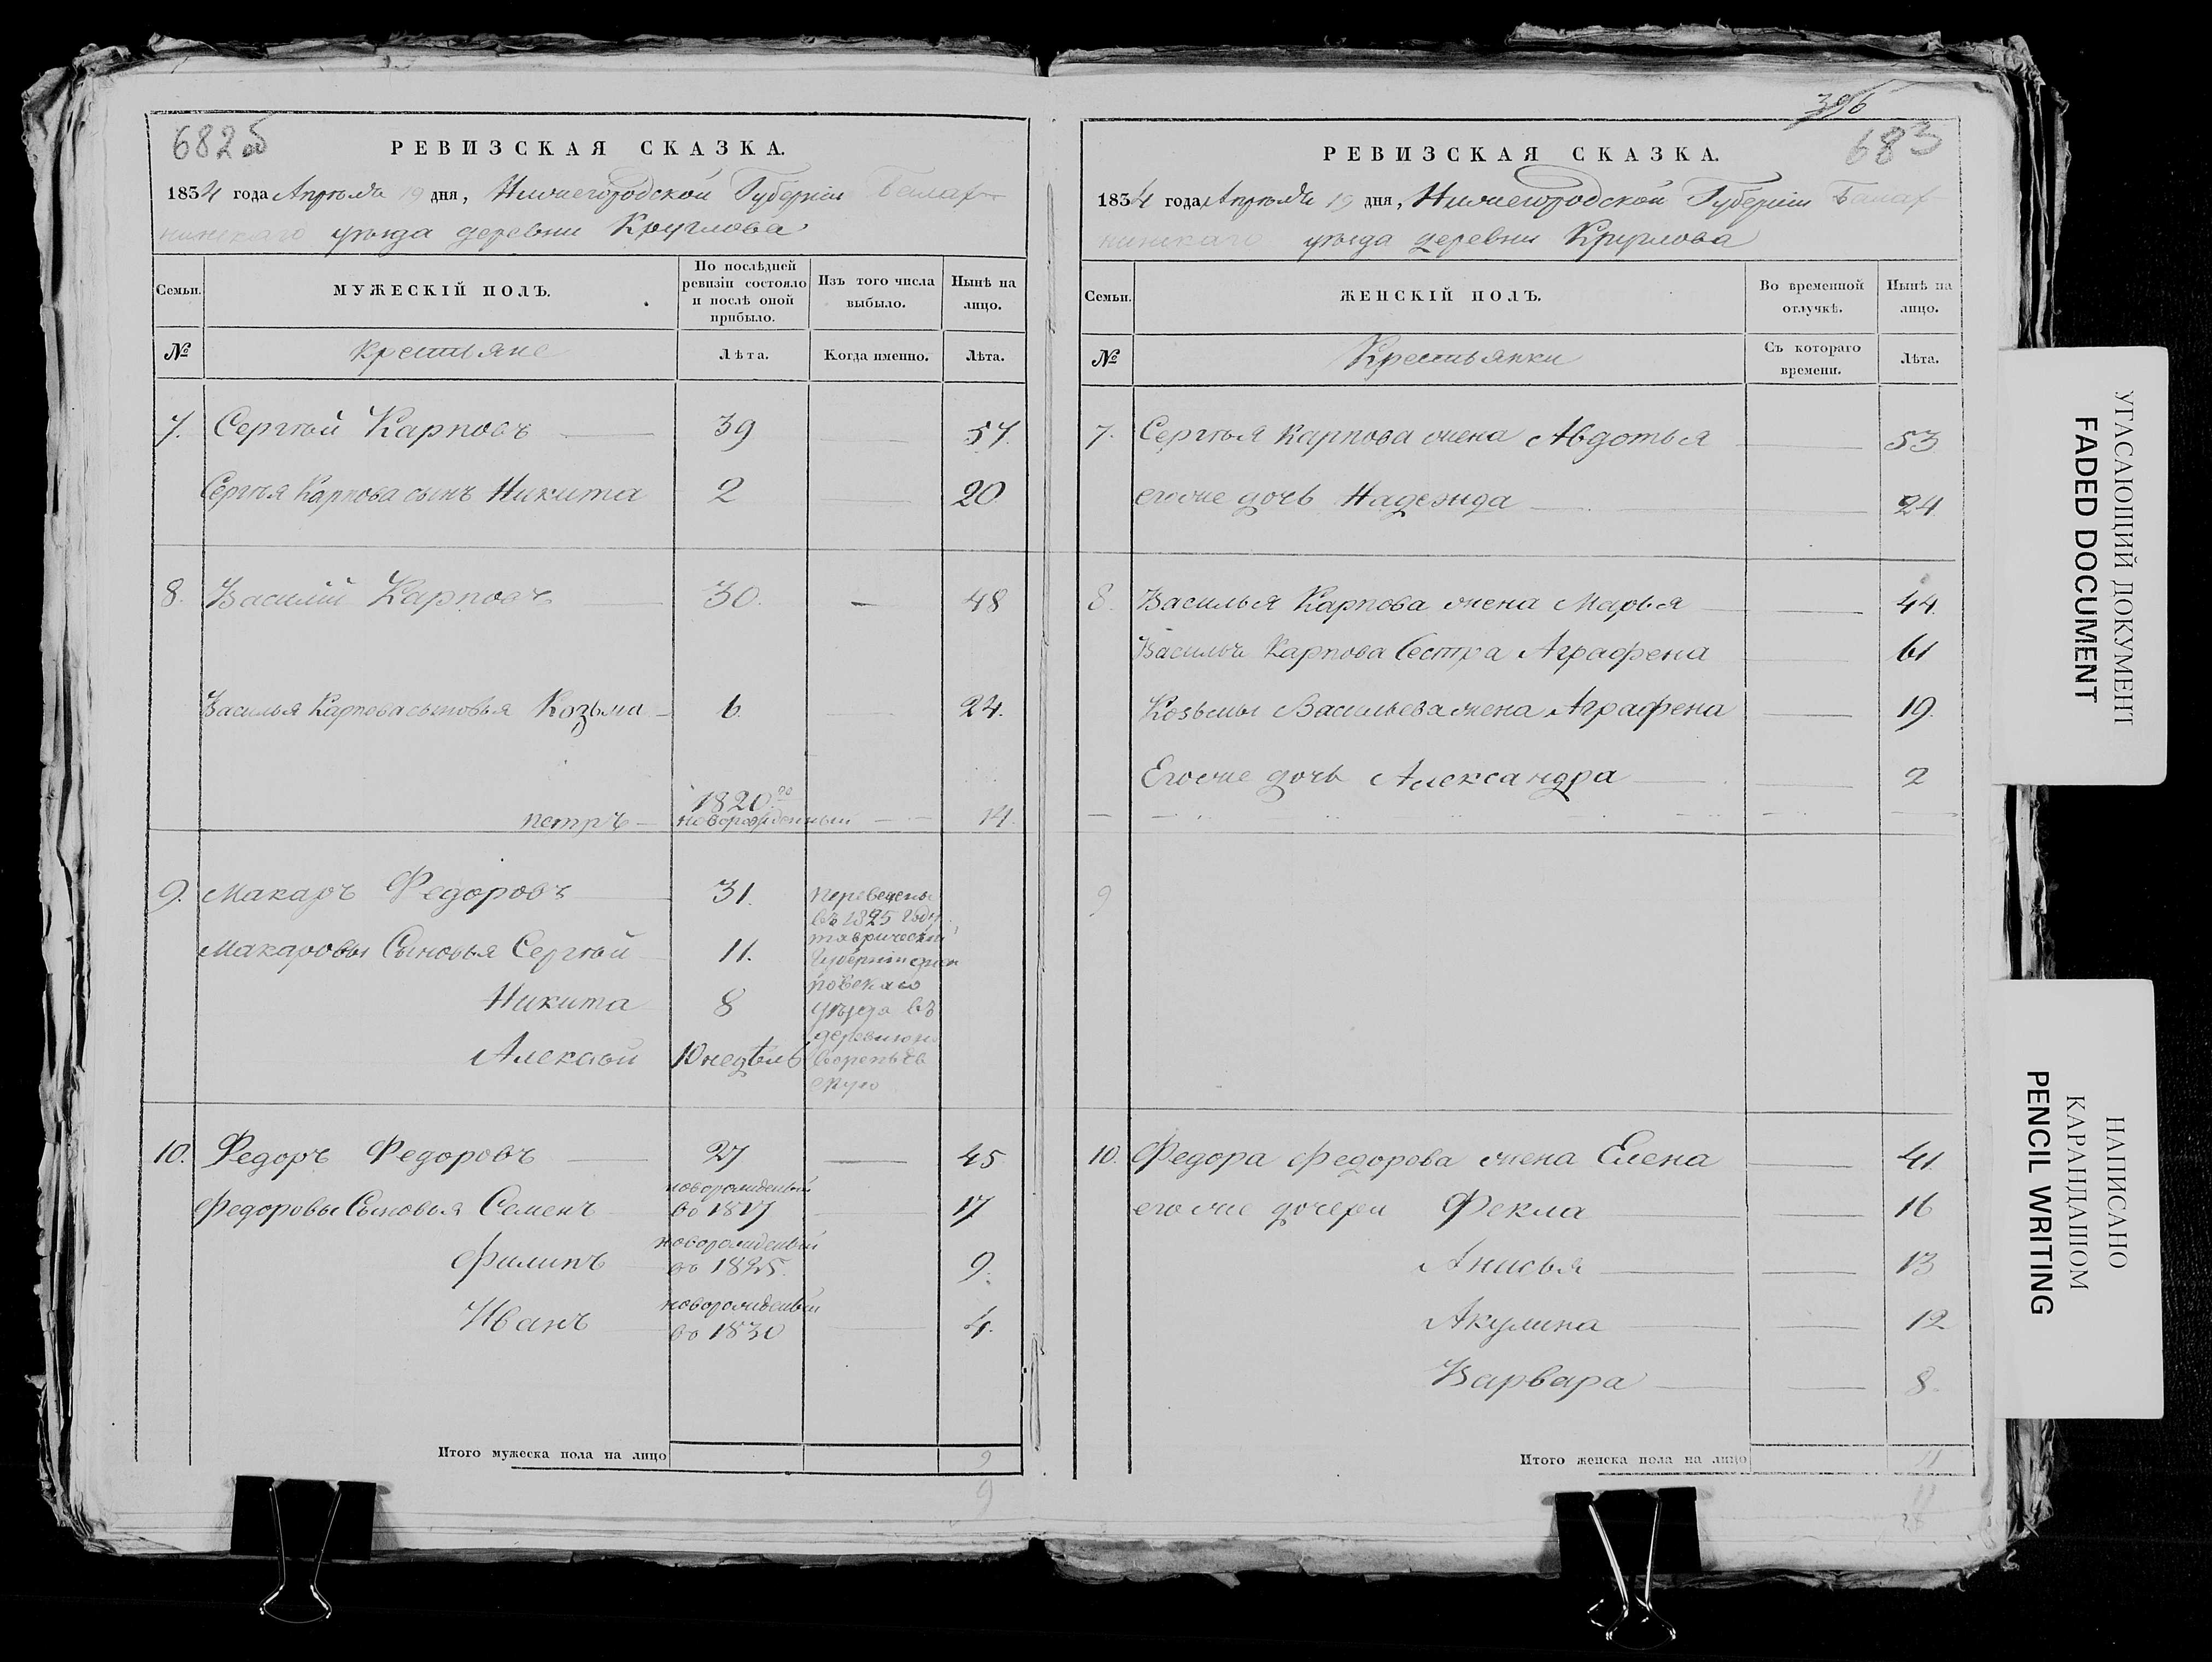 682об
РЕВИЗСКАЯ СКАЗКА.
1834 года Апреля 19 дня, Нижегородской Губернии Балах-
нинскаго уезда деревни Круглова
Семьи.
МУЖЕСКІЙ ПОЛЪ.
По послѣдней ревизіи состояло и послѣ оной прибыло.
Изъ того числа выбыло.
Нынѣ на лицо.
№ крестьяне Лѣта. Когда именно. Лѣта.
7. Сергѣй Карповъ 39 57.
Сергѣя Карпова сынъ Никита 2 20
8. Василій Карповъ 30. 48
Василья Карпова сыновья Козьма 6. 24.
Петръ 1820го новорожденный 14.
9. Макаръ Федоровъ 31. переведены
въ 1825 году
таврической
Губерніи днеп
ровскаго
уѣзда въ
деревню
Макаровы Сыновья Сергѣй 11.
Никита 8
Алексѣй 10 недѣль
10. Федоръ Федоровъ 27 45
Федоровы Сыновья Семенъ новорожденый во 1817 17
Филипъ новорожденый во 1825. 9.
Иванъ новорожденый во 1830 4.
Итого мужеска пола на лицо 9
9
396
683
РЕВИЗСКАЯ СКАЗКА.
1834 года Апреля 19 дня, Нижегородской Губерніи Балах-
нинскаго уезда деревни Круглова
Семьи.
ЖЕНСКІЙ ПОЛЪ.
Во временной отлучкѣ.
Нынѣ на лицо.
№ Крестьянки Съ котораго времени. Лѣта.
7. Сергѣя Карпова жена Авдотья 53
егоже дочь Надежда 24
8. Василья Карпова жена Марья 44.
Василья Карпова Сестра Аграфена 61
Козьмы Васильева жена Аграфена 19.
Егоже дочь Александра 2
9
10. Федора Федорова жена Елена 41.
егоже дочери Фекла 16
Анисья 13
Акулина 12
Варвара 8.
Итого женска пола на лицо 11
11
УГАСАЮЩИЙ ДОКУМЕНТ
FADED DOCUMENT
НАПИСАНО
КАРАНДАШОМ
PENCIL WRITING